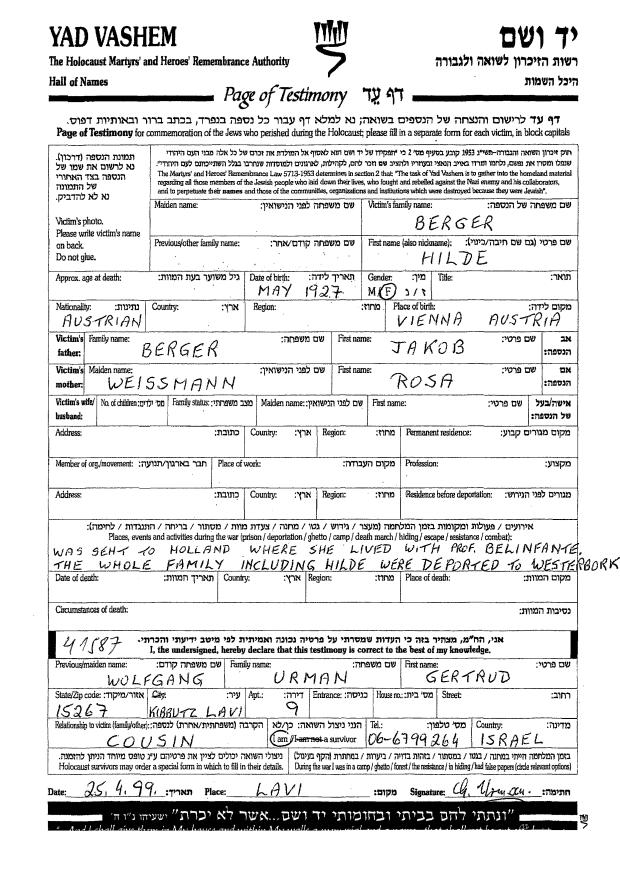 YAD VASHEM
יד ושם
The Holocaust Martyrs' and Heroes' Remembrance Authority
רשות הזיכרון לשואה ולגבורה
Hall of Names
היכל השמות
Page of Testimony דף עד
דף עד לרישום והנצחה של הנספים בשואה; נא למלא דף עבור כל נספה בנפרד, בכתב ברור ובאותיות דפוס.
Page of Testimony for commemoration of the Jews who perished during the Holocaust; please fill in a separate form for each victim, in block capitals
תמונת הנספה (דרכון).
נא לרשום את שמו של
הנספה בצד האחורי
של התמונה
נא לא להדביק.
Victim's photo.
Please write victim's name
on back.
Do not glue.
The Martyrs' and Heroes' Remembrance Law 5713-1953 determines in section 2 that: "The task of Yad Vashem is to gather into the homeland material
regarding all those members of the Jewish people who laid down their lives, who fought and rebelled against the Nazi enemy and his collaborators,
and to perpetuate their names and those of the communities, organizations and institutions which were destroyed because they were Jewish".
Maiden name: שם משפחה לפני הנישואין:
Victim's family name: שם משפחה של הנספה:
BERGER
Previous/other family name: שם משפחה קודם/אחר:
First name (also nickname): שם פרטי (גם שם חיבה/כינוי):
HILDE
Approx. age at death: גיל משוער בעת המוות:
Date of birth: תאריך לידה:
MAY 1927
Gender: מין:
M F ז / נ
Title: תואר:
Nationality: נתינות:
AUSTRIAN
Country: ארץ:
Region: מחוז:
Place of birth: מקום לידה:
VIENNA AUSTRIA
Victim's father: Family name: שם משפחה:
BERGER
First name: שם פרטי:
JAKOB
אב הנספה:
Victim's mother: Maiden name: שם לפני הנישואין:
WEISSMANN
First name: שם פרטי:
ROSA
אם הנספה:
Victim's wife/ husband: No. of children: מס' ילדים: Family status: מצב משפחתי: Maiden name: שם לפני הנישואין: First name: שם פרטי: אישה/בעל של הנספה:
Address: כתובת: Country: ארץ: Region: מחוז: Permanent residence: מקום מגורים קבוע:
Member of org./movement: חבר בארגון/תנועה: Place of work: מקום העבודה: Profession: מקצוע:
Address: כתובת: Country: ארץ: Region: מחוז: Residence before deportation: מגורים לפני הגירוש:
אירועים / פעולות ומקומות בזמן המלחמה (מעצר / גירוש / גטו / מחנה / צעדת מוות / מסתור / בריחה / התנגדות / לחימה):
Places, events and activities during the war (prison / deportation / ghetto / camp / death march / hiding / escape / resistance / combat):
WAS SENT TO HOLLAND WHERE SHE LIVED WITH PROF. BELINFANTE.
THE WHOLE FAMILY INCLUDING HILDE WERE DEPORTED TO WESTERBORK
Date of death: תאריך המוות: Country: ארץ: Region: מחוז: Place of death: מקום המוות:
Circumstances of death: נסיבות המוות:
41587
אני, הח"מ, מצהיר בזה כי העדות שמסרתי על פרטיה נכונה ואמיתית לפי מיטב ידיעתי והכרתי.
I, the undersigned, hereby declare that this testimony is correct to the best of my knowledge.
Previous/maiden name: שם משפחה קודם:
WOLFGANG
Family name: שם משפחה:
URMAN
First name: שם פרטי:
GERTRUD
State/Zip code: אזור/מיקוד:
15267
City: עיר:
KIBBUTZ LAVI
Apt.: דירה:
9
Entrance: כניסה: House no.: מס' בית: Street: רחוב:
Relationship to victim (family/other): הקרבה (משפחתית/אחרת) לנספה:
COUSIN
הנני ניצול השואה: כן/לא
I am / I am not a survivor
Tel.: מס' טלפון:
06-6799264
Country: מדינה:
ISRAEL
ניצולי השואה יכולים לציין את פרטיהם ע"ג טופס מיוחד הניתן להזמנה.
Holocaust survivors may order a special form in which to fill in their details.
בזמן המלחמה הייתי במחנה / בגטו / במסתור / בזהות בדויה / ביערות / במחתרת (הקף בעיגול)
During the war I was in a camp / ghetto / forest / the resistance / in hiding / had false papers (circle relevant options)
Date: 25.4.99. תאריך: Place: LAVI מקום: Signature: G. Urman. חתימה:
"ונתתי להם בביתי ובחומותי יד ושם...אשר לא יכרת" ישעיהו נ"ו ה'